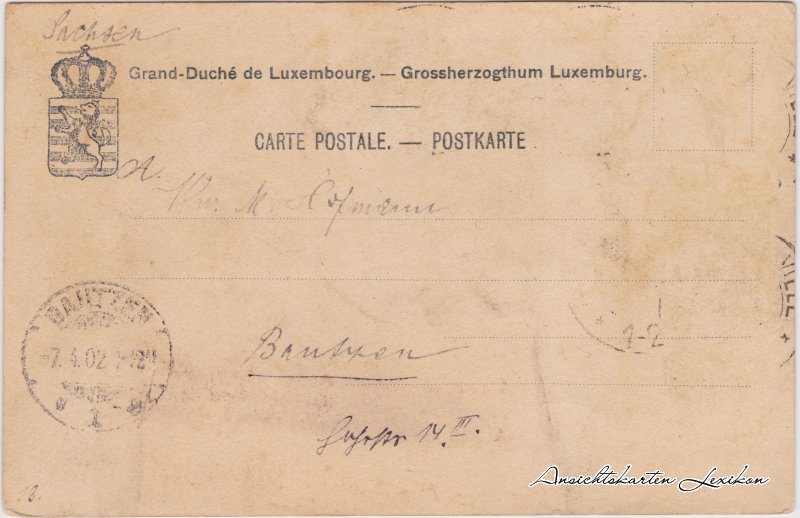 Sachsen
Grand-Duché de Luxembourg. — Grossherzogthum Luxemburg.
CARTE POSTALE. — POSTKARTE
M. Hofmann
BAUTZEN
7.4.02
1
1-2
Bautzen
14 III.
13.
Ansichtskarten Lexikon